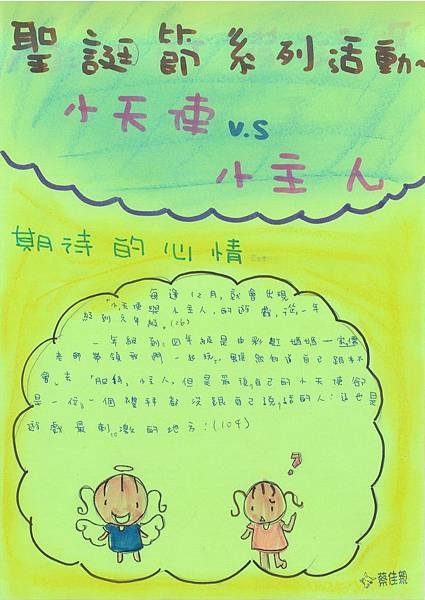 聖誕節系列活動~
小天使 v.s
小主人
期待的心情
每逢12月,就會出現
「小天使與小主人」的遊戲,從一年
級到六年級。(26)
一年級到四年級是由彩虹媽媽
老師帶領我們一起玩,雖然知道自己
會去
小主人,但是最後,自己的小天使卻
是一位,一個禮拜都沒跟自己說話的人:這也是
遊戲最刺激的地方:(104)
?
蔡佳穎